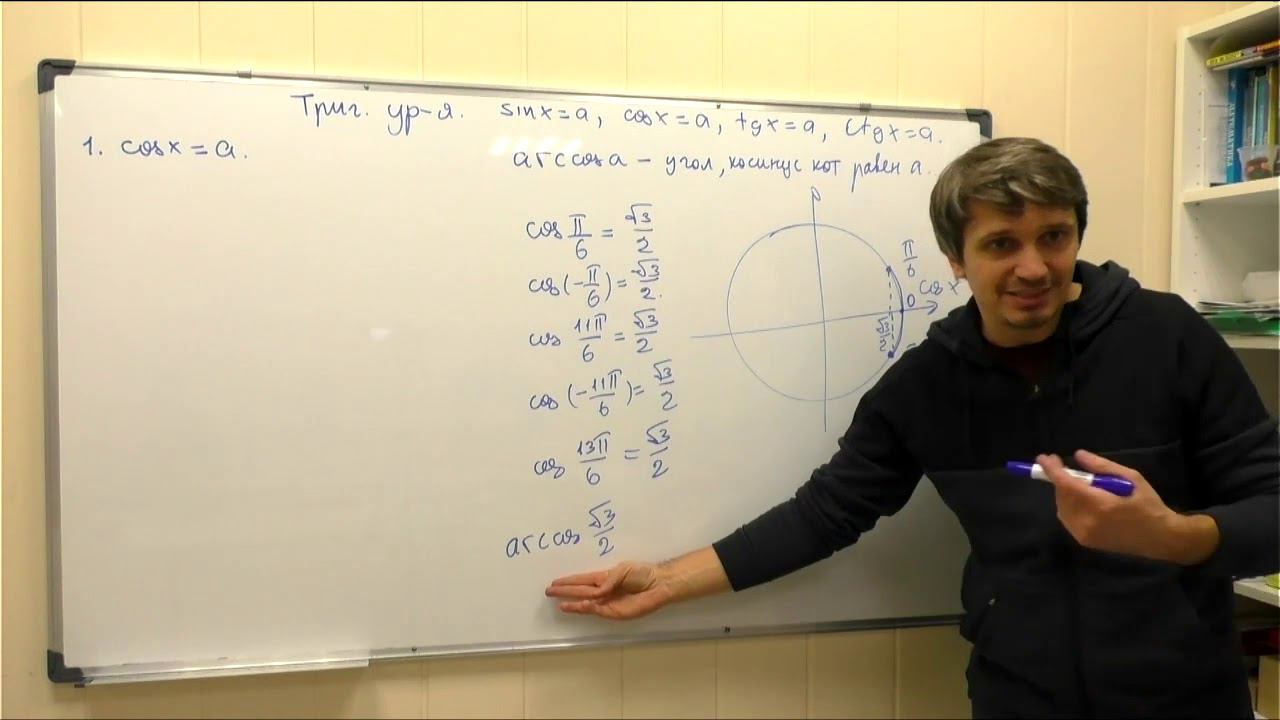 Триг. ур-я. sinx=a, cosx=a, tgx=a, ctgx=a.
1. cosx=a.
arccos a – угол, косинус кот равен a.
cos π/6 = √3/2
cos(-π/6) = √3/2.
cos 11π/6 = √3/2
cos(-11π/6) = √3/2
cos 13π/6 = √3/2
arccos √3/2
π/6
0
cos x
√3/2